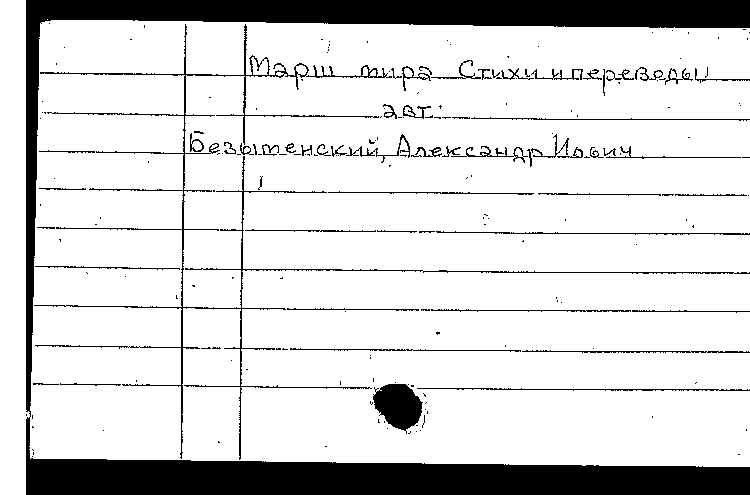 Марш мира Стихи и переводы
авт.
Безыменский, Александр Ильич.